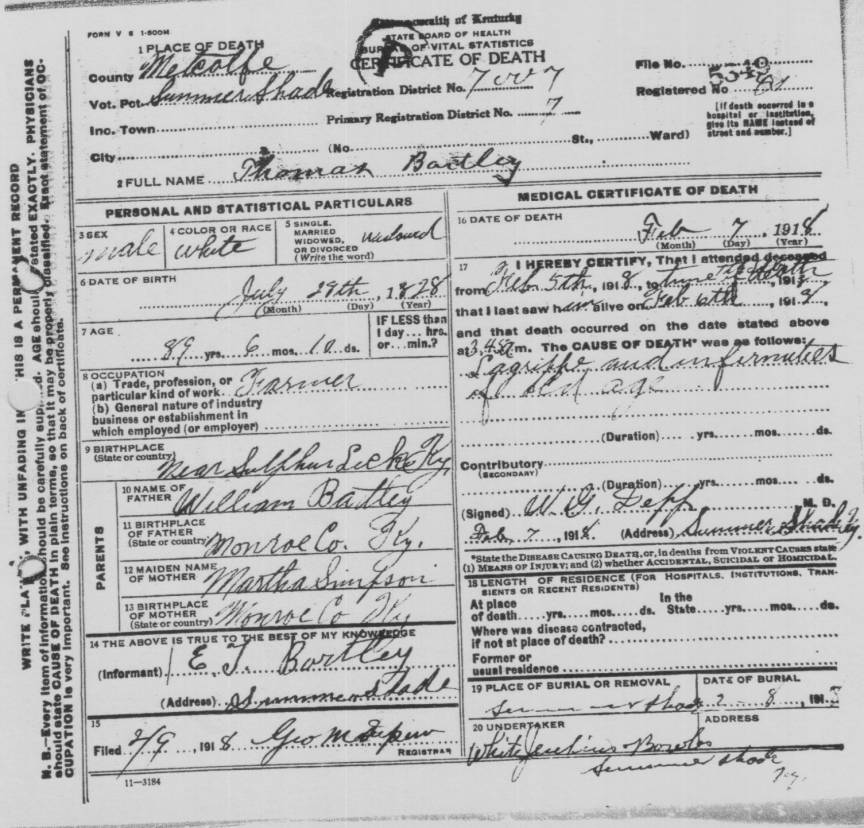 FORM V S 1-500M
Commonwealth of Kentucky
STATE BOARD OF HEALTH
BUREAU OF VITAL STATISTICS
CERTIFICATE OF DEATH
1 PLACE OF DEATH
County Metcalfe
Vot. Pct. Summer Shade
Registration District No. 7007
Inc. Town
Primary Registration District No. 7
City (No. St., Ward)
File No.
Registered No
[If death occurred in a
hospital or institution,
give its NAME instead of
street and number.]
2 FULL NAME Thomas Bartley
PERSONAL AND STATISTICAL PARTICULARS
3 SEX male
4 COLOR OR RACE white
5 SINGLE,
MARRIED
WIDOWED,
OR DIVORCED
(Write the word)
Widowed
6 DATE OF BIRTH
July 29th, 1828
(Month) (Day) (Year)
7 AGE
89 yrs. 6 mos. 10 ds.
IF LESS than
1 day... hrs.
or... min.?
8 OCCUPATION
(a) Trade, profession, or
particular kind of work Farmer
(b) General nature of industry
business or establishment in
which employed (or employer)
9 BIRTHPLACE
(State or country)
Near Sulphur Lick Ky.
PARENTS
10 NAME OF
FATHER
William Batley
11 BIRTHPLACE
OF FATHER
(State or country)
Monroe Co. Ky.
12 MAIDEN NAME
OF MOTHER
Martha Simpson
13 BIRTHPLACE
OF MOTHER
(State or country)
Monroe Co Ky
14 THE ABOVE IS TRUE TO THE BEST OF MY KNOWLEDGE
(Informant) E. T. Bartley
(Address) Summer Shade
15
Filed 2/9, 1918 Geo M
REGISTRAR
11-3184
MEDICAL CERTIFICATE OF DEATH
16 DATE OF DEATH
Feb 7, 1918
(Month) (Day) (Year)
17 I HEREBY CERTIFY, That I attended deceased
from Feb 5th, 1918, to time of death 191
that I last saw him alive on Feb 6th, 1918,
and that death occurred on the date stated above
at m. The CAUSE OF DEATH* was as follows:
Lagrippe and infirmities
of old age
(Duration) yrs. mos. ds.
Contributory
(SECONDARY)
(Duration) yrs. mos. ds.
(Signed) W. G. Depp M. D.
Feb 7, 1918 (Address) Summer Shade Ky.
*State the DISEASE CAUSING DEATH, or, in deaths from VIOLENT CAUSES state
(1) MEANS OF INJURY; and (2) whether ACCIDENTAL, SUICIDAL OR HOMICIDAL.
18 LENGTH OF RESIDENCE (FOR HOSPITALS, INSTITUTIONS, TRAN-
SIENTS OR RECENT RESIDENTS)
At place
of death yrs. mos. ds.
In the
State yrs. mos. ds.
Where was disease contracted,
if not at place of death?
Former or
usual residence
19 PLACE OF BURIAL OR REMOVAL
Summer Shade
DATE OF BURIAL
2 8, 191
20 UNDERTAKER
White Jenkins Bowles
ADDRESS
Summer Shade
Ky.
WRITE PLAINLY, WITH UNFADING INK THIS IS A PERMANENT RECORD
N. B.—Every item of information should be carefully supplied. AGE should be stated EXACTLY. PHYSICIANS
should state CAUSE OF DEATH in plain terms, so that it may be properly classified. Exact statement of OC-
CUPATION is very important. See instructions on back of certificate.